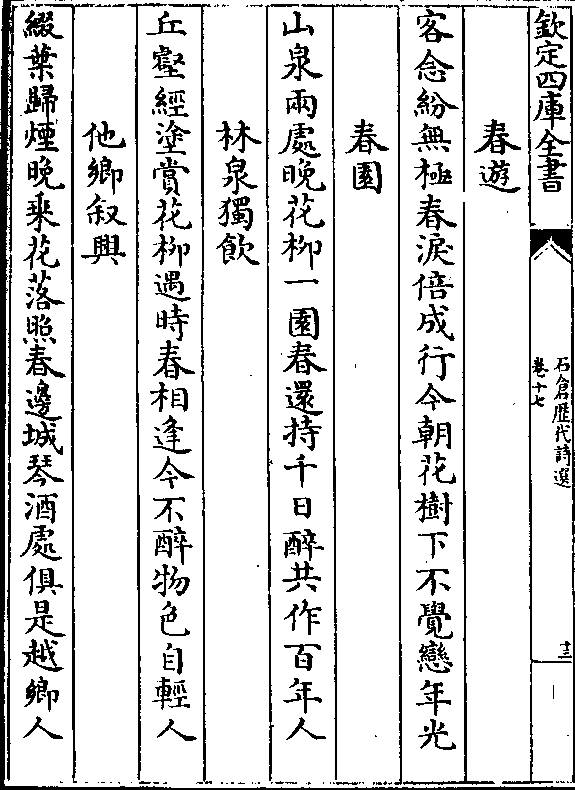 欽定四庫全書
石倉歷代詩選
卷十七
十三
春遊
客念紛無極春淚倍成行今朝花樹下不覺戀年光
春園
山泉兩處晚花柳一園春還持千日醉共作百年人
林泉獨飲
丘壑經塗賞花柳遇時春相逢今不醉物色自輕人
他鄉叙興
綴葉歸煙晚乗花落照春邊城琴酒處俱是越鄉人